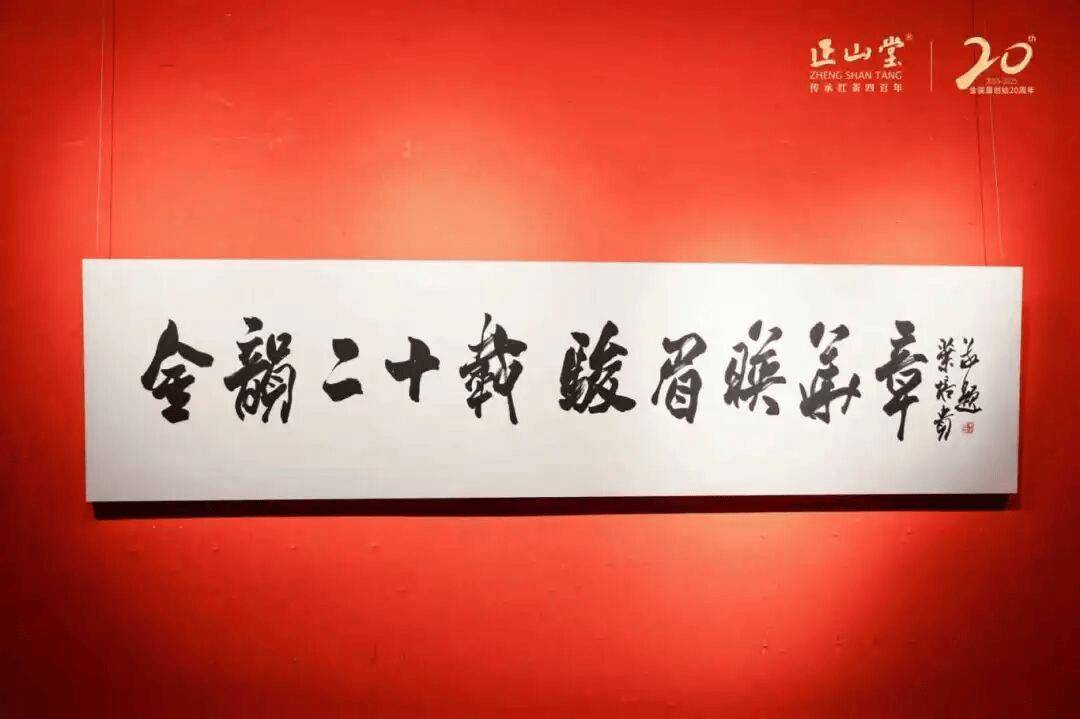 正山堂®
ZHENG SHAN TANG
传承红茶四百年
20th
2005-2025
金骏眉创始20周年
金韻二十載 駿眉暎華章
題
葉培貴